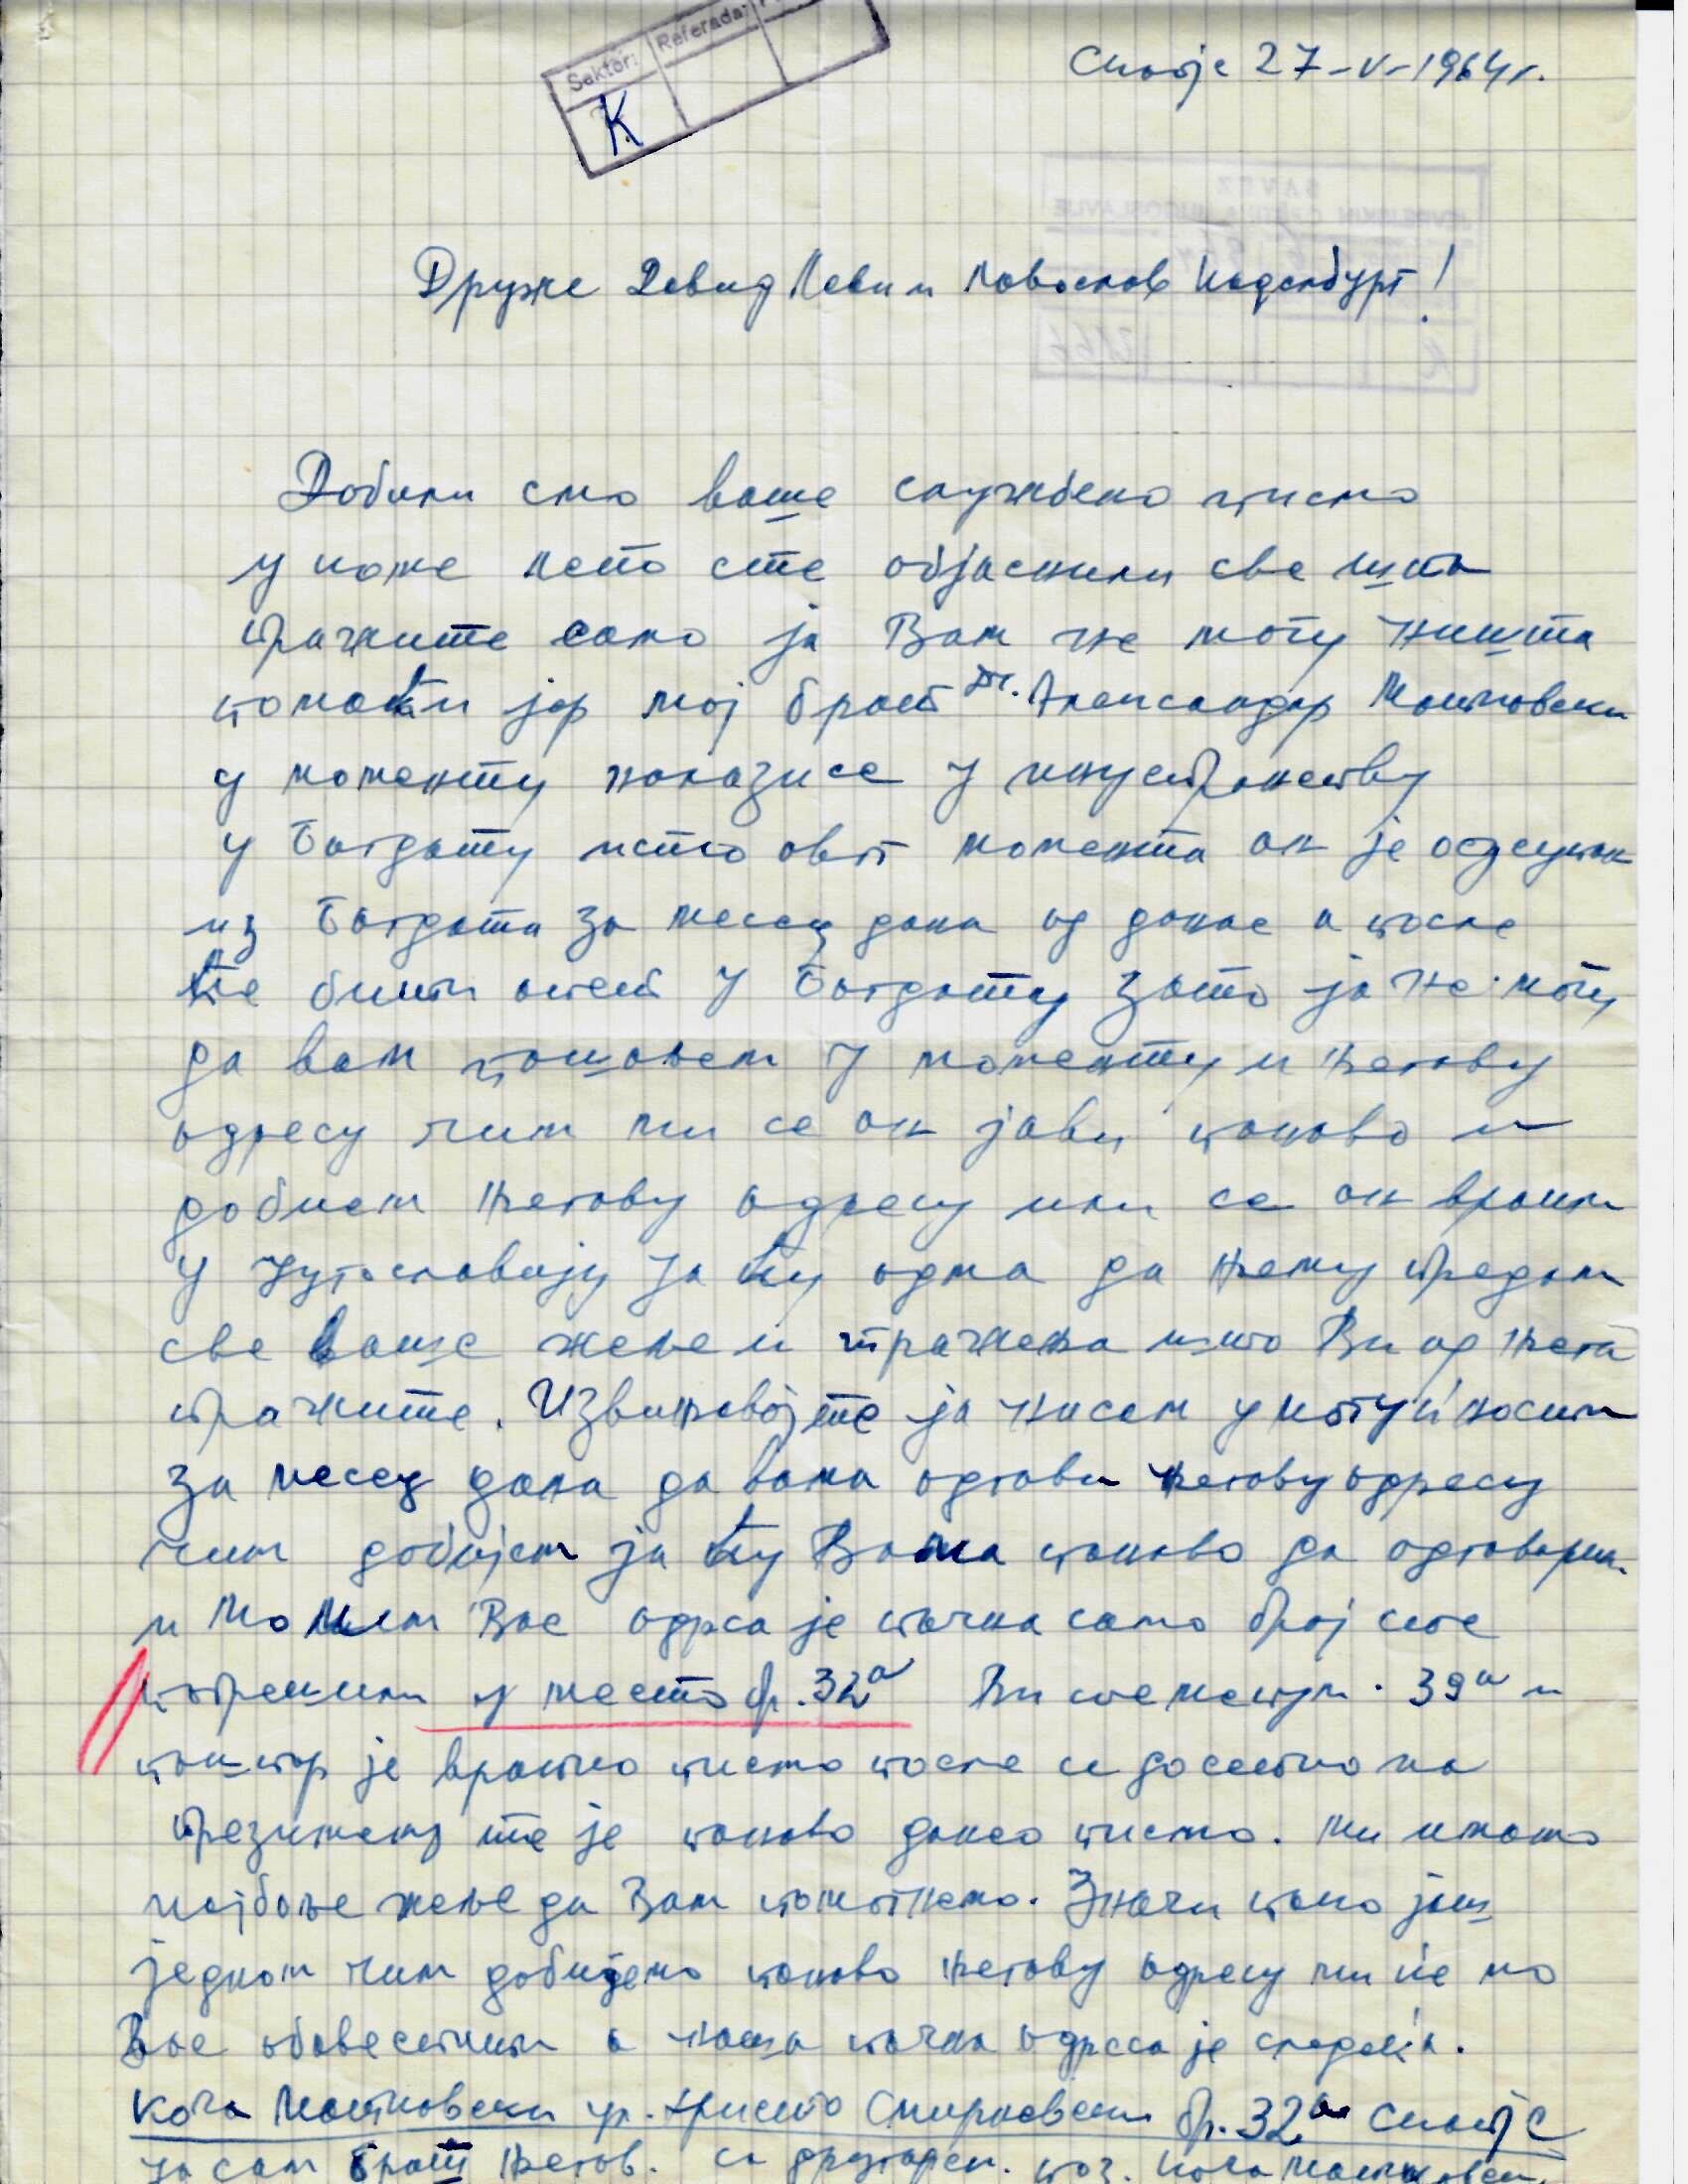 Sektor: Referada:
K
Скопје 27-V-1964г.
Друже Давид Леви и Лавослав Каделбург!
Добили смо ваше службено писмо
у коме лепо сте објаснили све шта
тражите само ја Вам не могу ништа
помоћи јер мој брат Др. Александар
у моменту налази се у иностранству
у Багдату исто овог момента он је одсутан
из Багдата за месец дана од данас а после
ће бити опет у Багдату зато ја не могу
да вам пошаљем у моменту и његову
адресу чим ми се он јави поново и
добием његову адресу или се он врати
у Југославију ја ћу одма да њему предам
све ваше жеље и тражења што Ви од њега
тражите. Извињавојте ја нисам у могућности
за месец дана да вама одгови његову адресу
чим добијем ја ћу Вама поново да одговорим.
и Молим Вас адрса је тачна само број сте
погрешили у место бр. 32а Ви сте 39а и
поштар је вратио писмо после се досетио на
презимену те је поново данео писмо. Ми имамо
најбоље жеље да Вам помогнемо. Значи само још
једном чим добијемо поново његову адресу ми ће мо
Вас обавестити а наша тачна адреса је следећа.
Коча ул. Христо Смирневски бр. 32а Скопје
ја сам брат његов. са другарск. поз. Коча